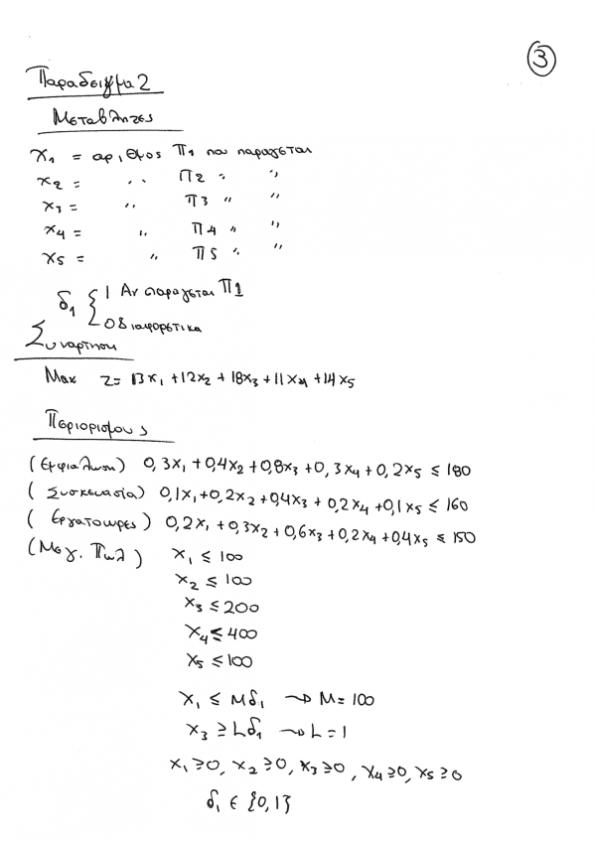 3
Παραδειγμα 2
Μεταβλητες
x₁ = αριθμος Π1 που παραγεται
x₂ = ,, Π2 ,, ,,
x₃ = ,, Π3 ,, ,,
x₄ = ,, Π4 ,, ,,
x₅ = ,, Π5 ,, ,,
δ₁ { 1 Αν παραγεται Π1
0 διαφορετικα
Συναρτηση
Max z = 13x₁ + 12x₂ + 18x₃ + 11x₄ + 14x₅
Περιορισμους
(Εμφιαλωση) 0,3x₁ + 0,4x₂ + 0,8x₃ + 0,3x₄ + 0,2x₅ ≤ 180
(Συσκευασία) 0,1x₁ + 0,2x₂ + 0,4x₃ + 0,2x₄ + 0,1x₅ ≤ 160
(Εργατοωρες) 0,2x₁ + 0,3x₂ + 0,6x₃ + 0,2x₄ + 0,4x₅ ≤ 150
(Μεγ. Πωλ) x₁ ≤ 100
x₂ ≤ 100
x₃ ≤ 200
x₄ ≤ 400
x₅ ≤ 100
x₁ ≤ Mδ₁ → M = 100
x₃ ≥ Lδ₁ → L = 1
x₁ ≥ 0, x₂ ≥ 0, x₃ ≥ 0, x₄ ≥ 0, x₅ ≥ 0
δ₁ ∈ {0,1}